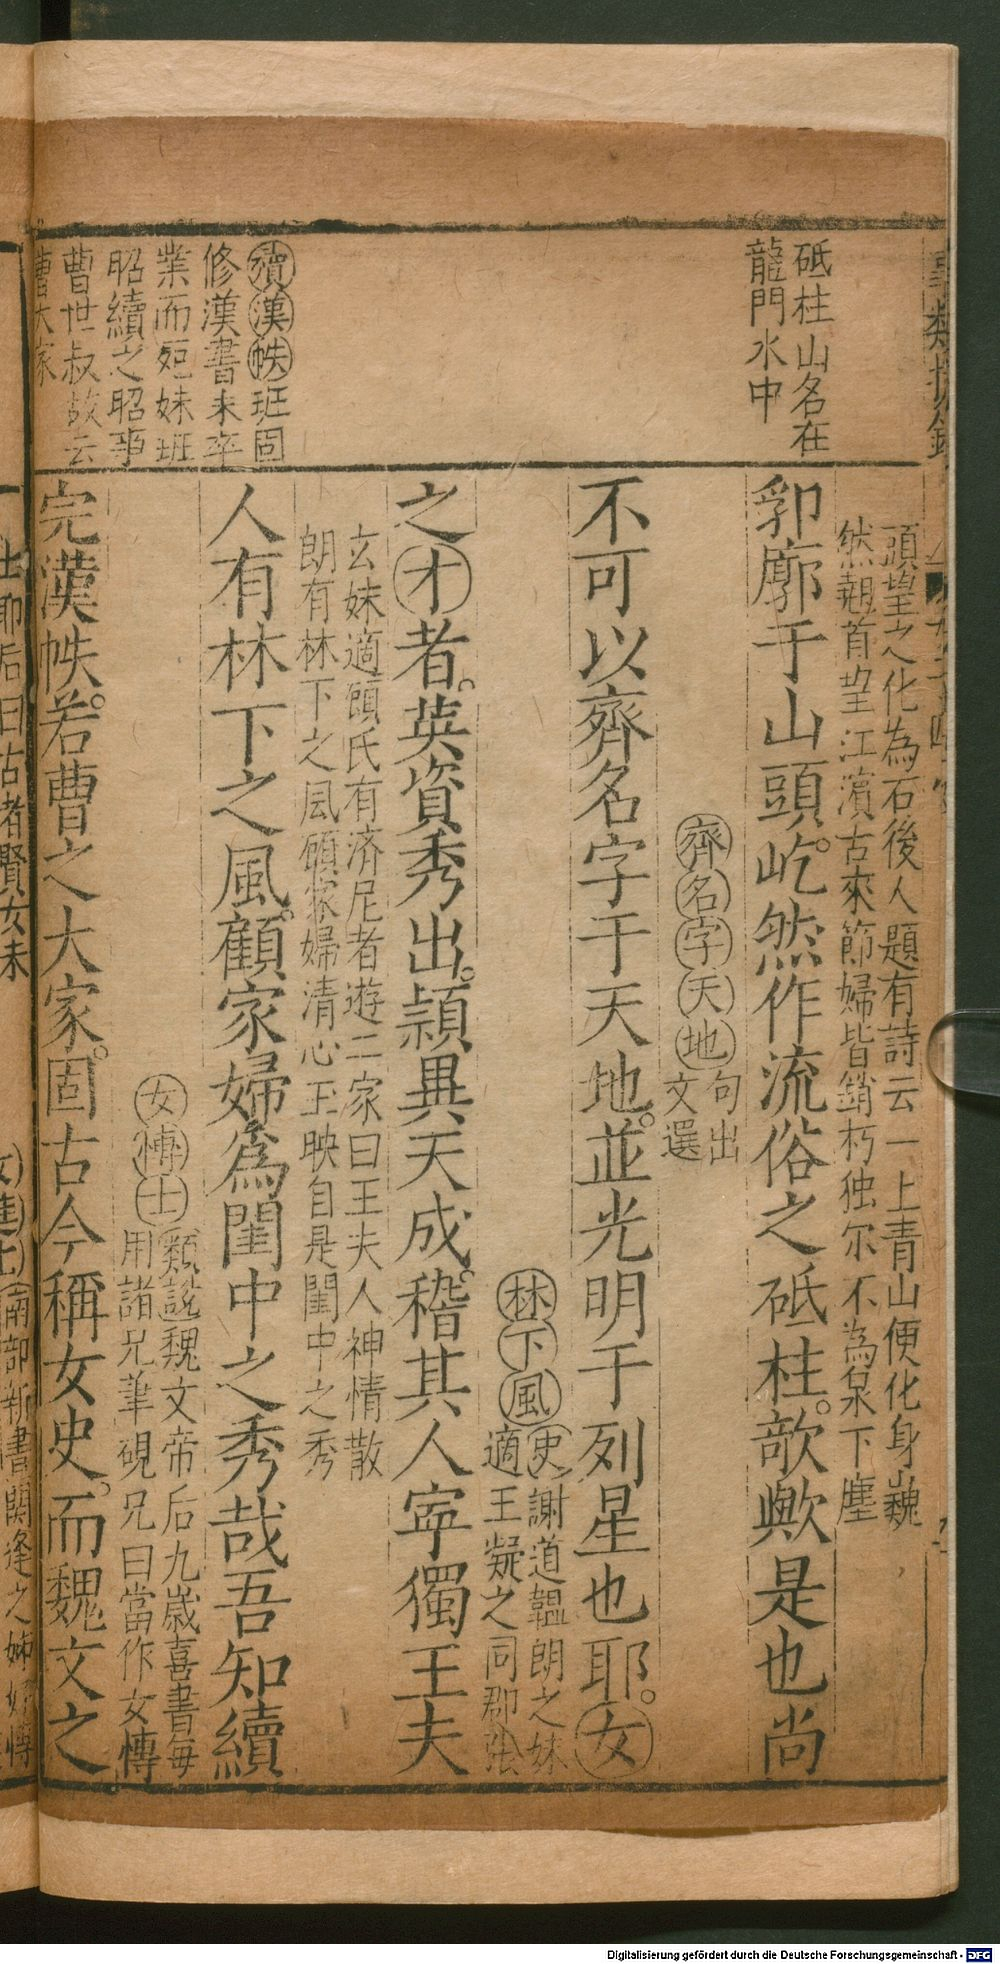 砥柱山名在
龍門水中
續漢帙班固
修漢書未卒
業而死妹班
昭續之昭事
曹世叔故云
曹大家
頭望之化為石後人題有詩云一上青山便化身巍
然翹首望江濱古來節婦皆銷朽独尔不為泉下塵
郛廓于山頭。屹然作流俗之砥柱。歆歟是也尚
齊名字天地句出
文選
不可以齊名字于天地。並光明于列星也耶。女
林下風史謝道韞朗之妹
適王凝之同郡張
之才者。英資秀出。頴異天成。稽其人寜獨王夫
玄妹適頋氏有済尼者遊二家曰王夫人神情散
朗有林下之風頋家婦清心玉映自是閨中之秀
人有林下之風。顧家婦為閨中之秀哉吾知續
女博士類說魏文帝后九歲喜書每
用諸兄筆硯兄曰當作女博
完漢帙。若曹之大家。固古今稱女史。而魏文之
士耶后曰古者賢女未
女進士南部新書關逢之姊
Digitalisierung gefördert durch die Deutsche Forschungsgemeinschaft - DFG